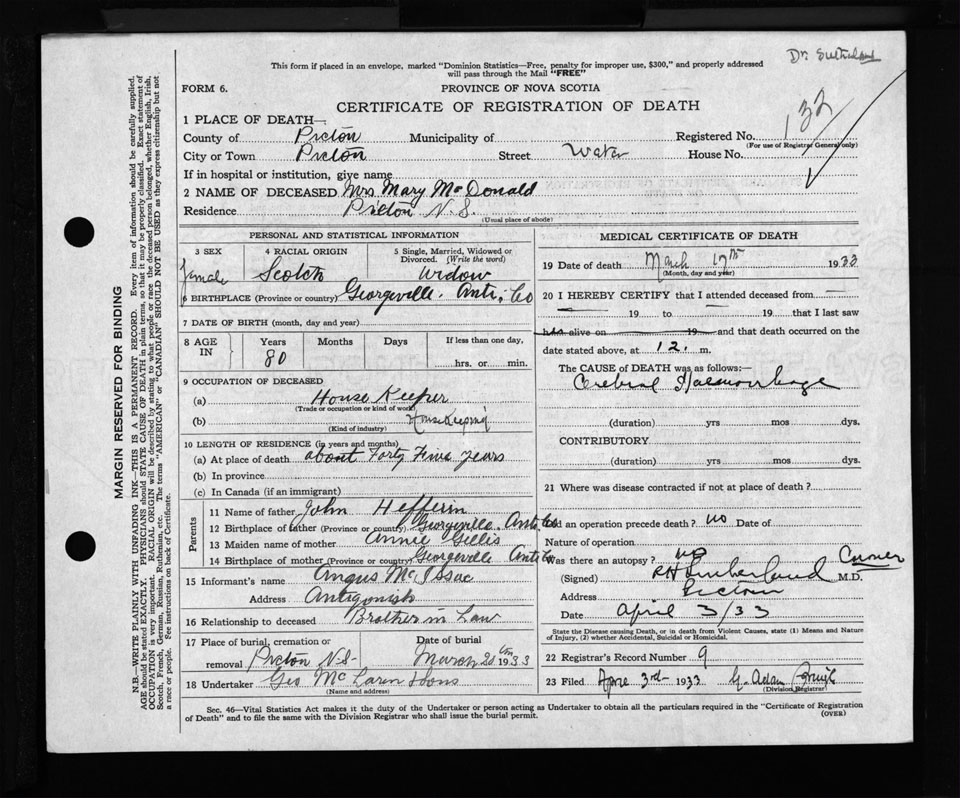 Dr. Sutherland
This form if placed in an envelope, marked "Dominion Statistics—Free, penalty for improper use, $300," and properly addressed
will pass through the Mail "FREE"
FORM 6.
PROVINCE OF NOVA SCOTIA
CERTIFICATE OF REGISTRATION OF DEATH
1 PLACE OF DEATH—
County of Pictou Municipality of Registered No. 132
(For use of Registrar General only)
City or Town Pictou Street Water House No.
If in hospital or institution, give name
2 NAME OF DECEASED Mrs Mary McDonald
Residence Pictou N.S.
(Usual place of abode)
PERSONAL AND STATISTICAL INFORMATION
3 SEX 4 RACIAL ORIGIN 5 Single, Married, Widowed or
Divorced. (Write the word)
Female Scotch Widow
6 BIRTHPLACE (Province or country) Georgeville. Anti. Co
7 DATE OF BIRTH (month, day and year)
8 AGE IN Years Months Days If less than one day,
80 hrs. or min.
9 OCCUPATION OF DECEASED
(a) House Keeper
(Trade or occupation or kind of work)
(b) House Keeping
(Kind of industry)
10 LENGTH OF RESIDENCE (in years and months)
(a) At place of death about Forty Five years
(b) In province
(c) In Canada (if an immigrant)
Parents
11 Name of father John Hefferin
12 Birthplace of father (Province or country) Georgeville. Anti Co
13 Maiden name of mother Annie Gillis
14 Birthplace of mother (Province or country) Georgeville Anti Co
15 Informant's name Angus McIssac
Address Antigonish
16 Relationship to deceased Brother in Law
17 Place of burial, cremation or Date of burial
removal Pictou N.S. March 20th 1933
18 Undertaker Geo McLaren & Sons
(Name and address)
MEDICAL CERTIFICATE OF DEATH
19 Date of death March 17th 1933
(Month, day and year)
20 I HEREBY CERTIFY that I attended deceased from
19 to 19 that I last saw
h alive on 19 and that death occurred on
date stated above, at 12. m.
The CAUSE OF DEATH was as follows:—
Cerebral Haemorrhage
(duration) yrs mos dys.
CONTRIBUTORY
(duration) yrs mos dys.
21 Where was disease contracted if not at place of death?
Did an operation precede death? no Date of
Nature of operation
Was there an autopsy? no Coroner
(Signed) R H Sutherland M.D.
Address Pictou
Date April 3/33
State the Disease causing Death, or in death from Violent Causes, state (1) Means and Nature
of Injury, (2) whether Accidental, Suicidal or Homicidal.
22 Registrar's Record Number 9
23 Filed April 3rd 1933 G. Adam
(Division Registrar)
Sec. 46—Vital Statistics Act makes it the duty of the Undertaker or person acting as Undertaker to obtain all the particulars required in the "Certificate of Registration
of Death" and to file the same with the Division Registrar who shall issue the burial permit.
(OVER)
MARGIN RESERVED FOR BINDING
N.B.—WRITE PLAINLY WITH UNFADING INK—THIS IS A PERMANENT RECORD. Every item of information should be carefully supplied.
AGE should be stated EXACTLY. PHYSICIANS should STATE CAUSE OF DEATH in plain terms, so that it may be properly classified. Exact statement of
OCCUPATION is very important. RACIAL ORIGIN will be described by stating to what people or race the deceased person belonged, whether English, Irish,
Scotch, French, German, Russian, Ruthenian, etc. The terms "AMERICAN" or "CANADIAN" SHOULD NOT BE USED as they express citizenship but not
a race or people. Fee instructions on back of Certificate.